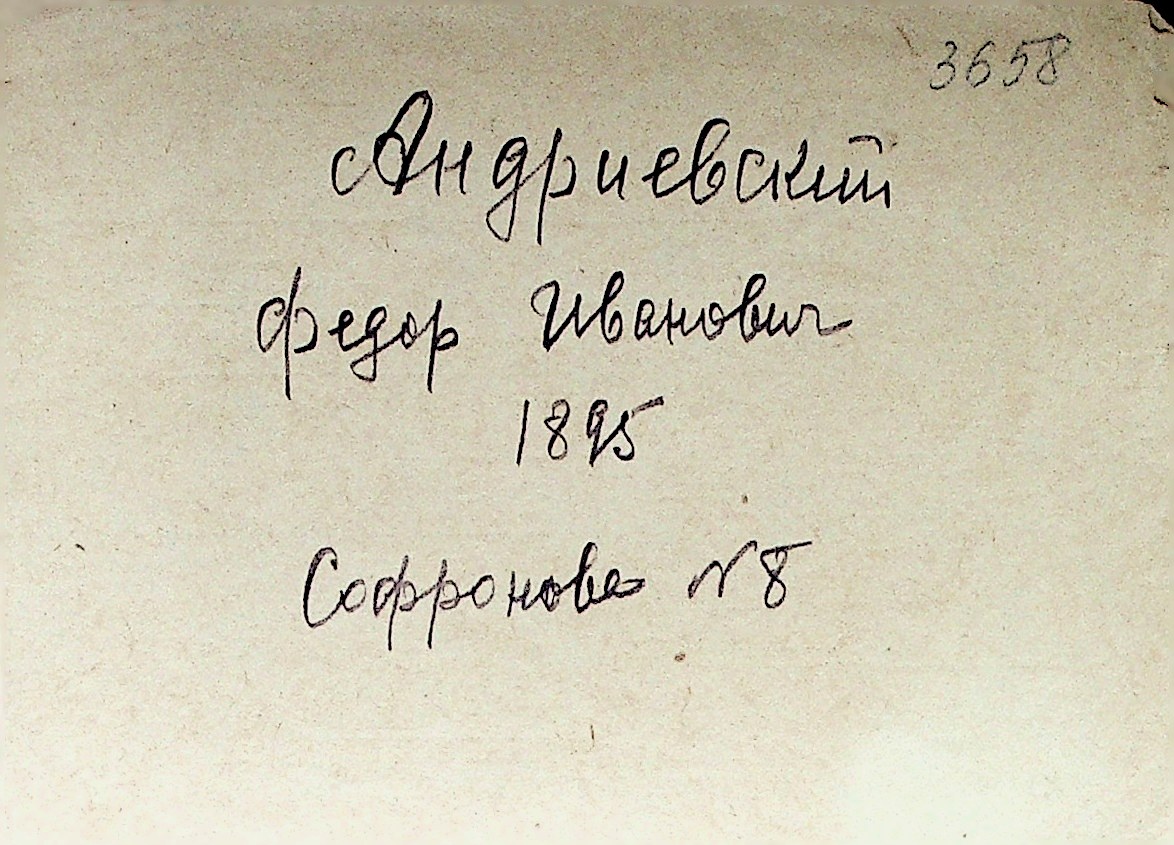 3658
Андриевский
Федор Иванович
1895
Софронова N8